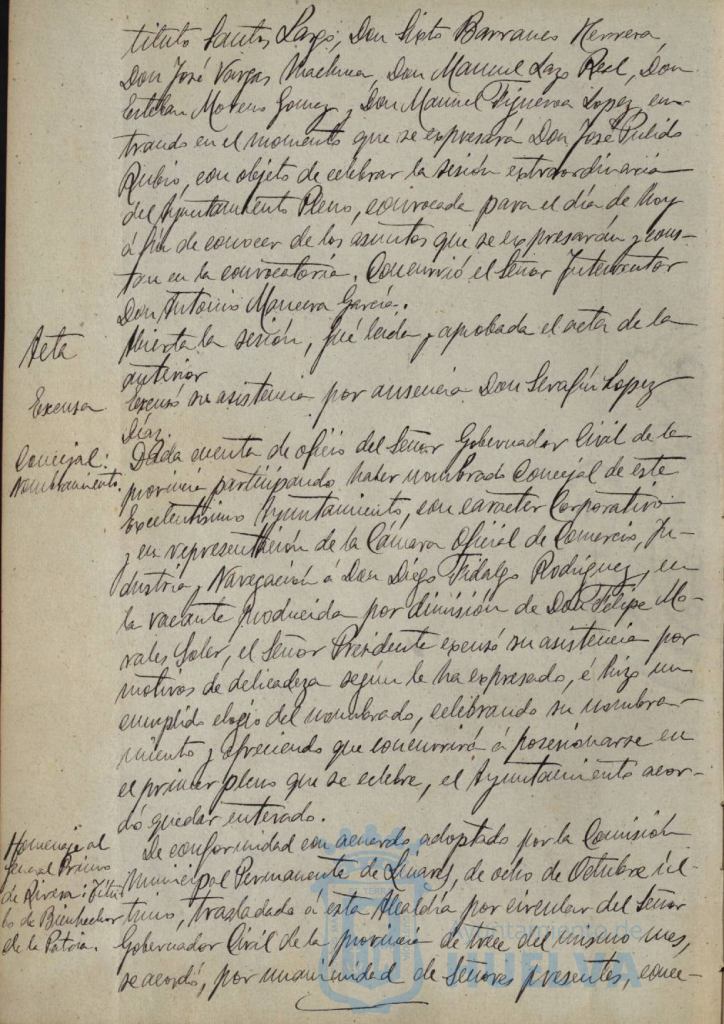 tituto Santos Largo, Don Sixto Barranco Herrera,
Don José Vargas Machuca, Don Manuel Lazo Real, Don
Esteban Moreno Gomez y Don Manuel Figueroa Lopez, en-
trando en el momento que se expresará Don José Pulido
Rubio, con objeto de celebrar la sesión extraordinaria
del Ayuntamiento Pleno, convocada para el día de hoy
á fin de conocer de los asuntos que se expresarán y cons-
tan en la convocatoria. Concurrió el Señor Interventor
Don Antonio Manceva García.
Acta
Abierta la sesión, fué leida y aprobada el acta de la
anterior
Excusa
Excusó su asistencia por ausencia Don Serafín Lopez
Díaz.
Concejal:
Nombramiento.
Dada cuenta de oficio del Señor Gobernador Civil de la
provincia participando haber nombrado Concejal de este
Excelentísimo Ayuntamiento, con caracter Corporativo
y en representación de la Cámara Oficial de Comercio, In-
dustria y Navegación á Don Diego Fidalgo Rodríguez, en
la vacante producida por dimisión de Don Felipe Mo-
rales Soler, el Señor Presidente excusó su asistencia por
motivos de delicadeza según le ha expresado, é hizo un
cumplido elogio del nombrado, celebrando su nombra-
miento y ofreciendo que concurrirá á posesionarse en
el primer pleno que se celebre, el Ayuntamiento acor-
dó quedar enterado.
Homenaje al
General Primo
de Rivera: Títu-
lo de Bienhechor
de la Patria.
De conformidad con acuerdo adoptado por la Comisión
Municipal Permanente de Linares, de ocho de Octubre úl-
timo, trasladado á esta Alcaldía por circular del Señor
Gobernador Civil de la provincia de trece del mismo mes,
se acordó, por unanimidad de Señores presentes, conce-
Ayuntamiento de
HUELVA